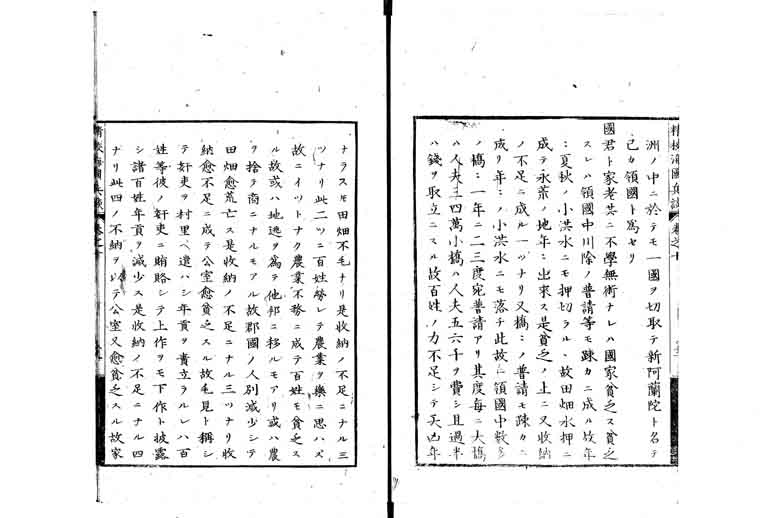 洲ノ中ニ於テモ一國ヲ切取テ新阿蘭陀ト名テ
己カ領國ト爲セリ
國君ト家老共ニ不學無術ナレハ國家貧乏ス貧乏
スレハ領國中川除ノ普請等モ疎カニ成ル故年
〻夏秋ノ小洪水ニモ押切ラル丶故田畑水押ニ
成テ永荒ノ地年〻出來ス是貧乏ノ上ニ又收納
ノ不足ニ成ル一ツナリ又橋〻ノ普請モ疎カニ
成リ年〻ノ小洪水ニモ落チ此故ニ領國中數多
ノ橋〻一年ニ二三度宛普請アリ其度毎ニ大橋
ハ人夫三四萬小橋ハ人夫五六千ヲ費シ且過半
ハ錢ヲ取立ニスル故百姓ノ力不足シテ凶年
ナラスモ田畑不毛ナリ是收納ノ不足ニナル三
ツナリ此二ツニ百姓勞レテ農業ヲ樂ニ思ハズ
故ニイツトナク農業不務ニ成テ百姓モ貧乏ス
ル故或ハ地逃ヲ爲テ他邦ニ移ルモアリ或ハ農
ヲ捨テ商ニナルモアル故郡國ノ人別減少シテ
田畑愈荒亡ス是收納ノ不足ニナル三ツナリ收
納愈不足ニ成テ公室愈貧乏スル故毛見ト稱シ
テ奸吏ヲ村里ヘ遣ハシ年貢ヲ責立ラルレハ百
姓等彼ノ奸吏ニ賄賂シテ上作ヲモ下作ト披露
シ諸百姓年貢ヲ減少ス是收納ノ不足ニナル四
ナリ此四ノ不納ヲ以テ公室又愈貧乏スル故家
精校海國兵談 卷之十